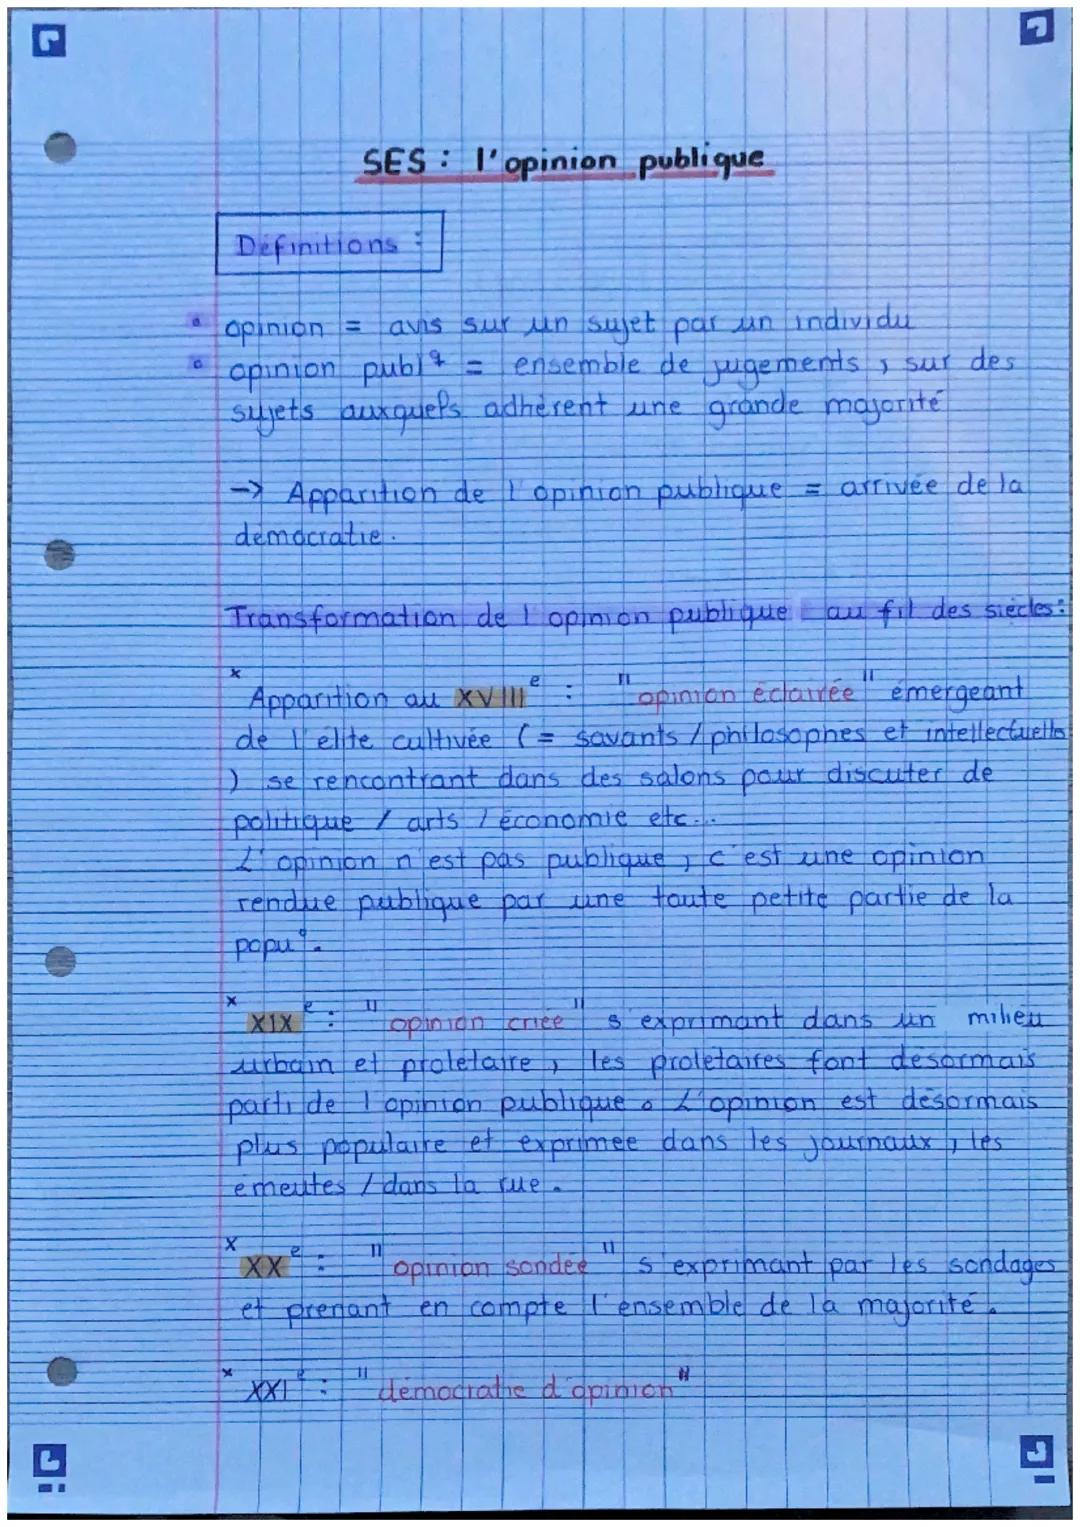 SES : l'opinion publique
Définitions :
opinion = avis sur un sujet par un individu
opinion publq = ensemble de jugements, sur des
sujets auxquels adhèrent une grande majorité
-> Apparition de l'opinion publique = arrivée de la
démocratie.
Transformation de l'opinion publique au fil des siècles :
x Apparition au XVIIIe : "opinion éclairée" émergeant
de l'élite cultivée (= savants / philosophes et intellectuells
) se rencontrant dans des salons pour discuter de
politique / arts / économie etc...
L'opinion n'est pas publique, c'est une opinion
rendue publique par une toute petite partie de la
popu°.
x XIXe : "opinion criée" s'exprimant dans un milieu
urbain et prolétaire, les prolétaires font désormais
parti de l'opinion publique. L'opinion est désormais
plus populaire et exprimée dans les journaux, les
émeutes / dans la rue.
x XXe : "opinion sondée" s'exprimant par les sondages
et prenant en compte l'ensemble de la majorité.
x XXIe : "démocratie d'opinion"